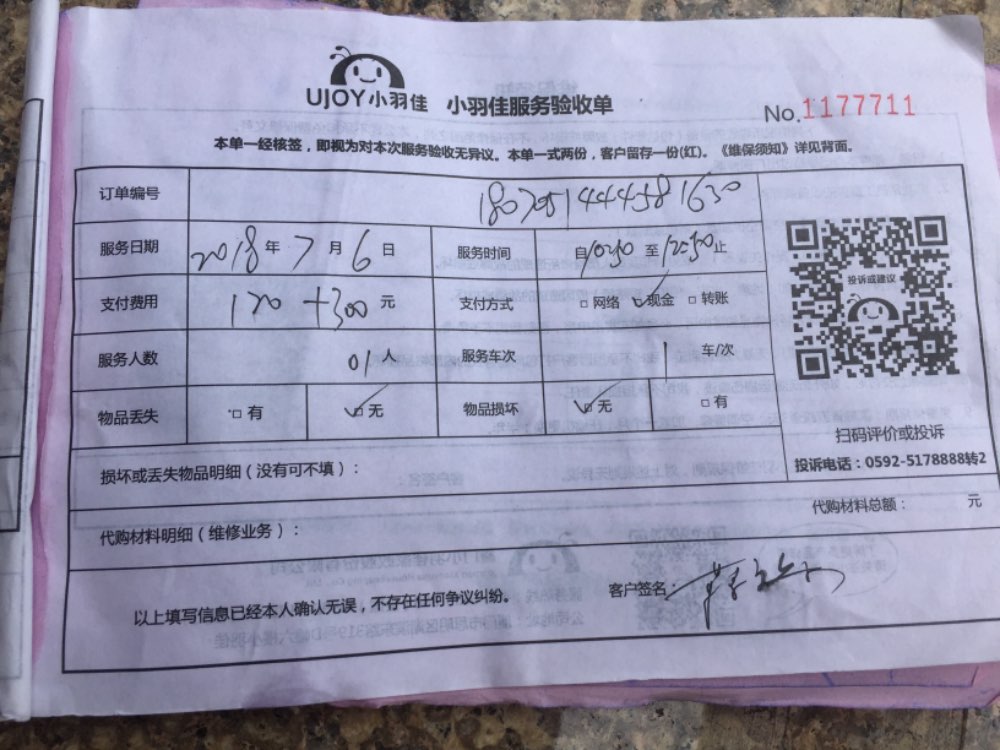 UJOY小羽佳 小羽佳服务验收单
No.1177711
本单一经核签，即视为对本次服务验收无异议。本单一式两份，客户留存一份(红)。《维保须知》详见背面。
订单编号
服务日期 2018年7月6日 服务时间 自10:30至12:30止
支付费用 120+300元 支付方式 □网络 ☑现金 □转账
服务人数 01人 服务车次 1 车/次
物品丢失 □有 ☑无 物品损坏 ☑无 □有
投诉或建议
扫码评价或投诉
投诉电话：0592-5178888转2
损坏或丢失物品明细（没有可不填）：
代购材料明细（维修业务）：
代购材料总额： 元
以上填写信息已经本人确认无误，不存在任何争议纠纷。
客户签名：